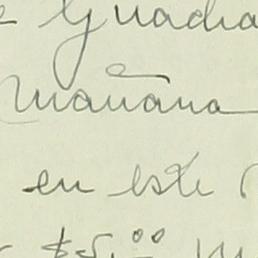 Guadia
mañana
en este
$5.00